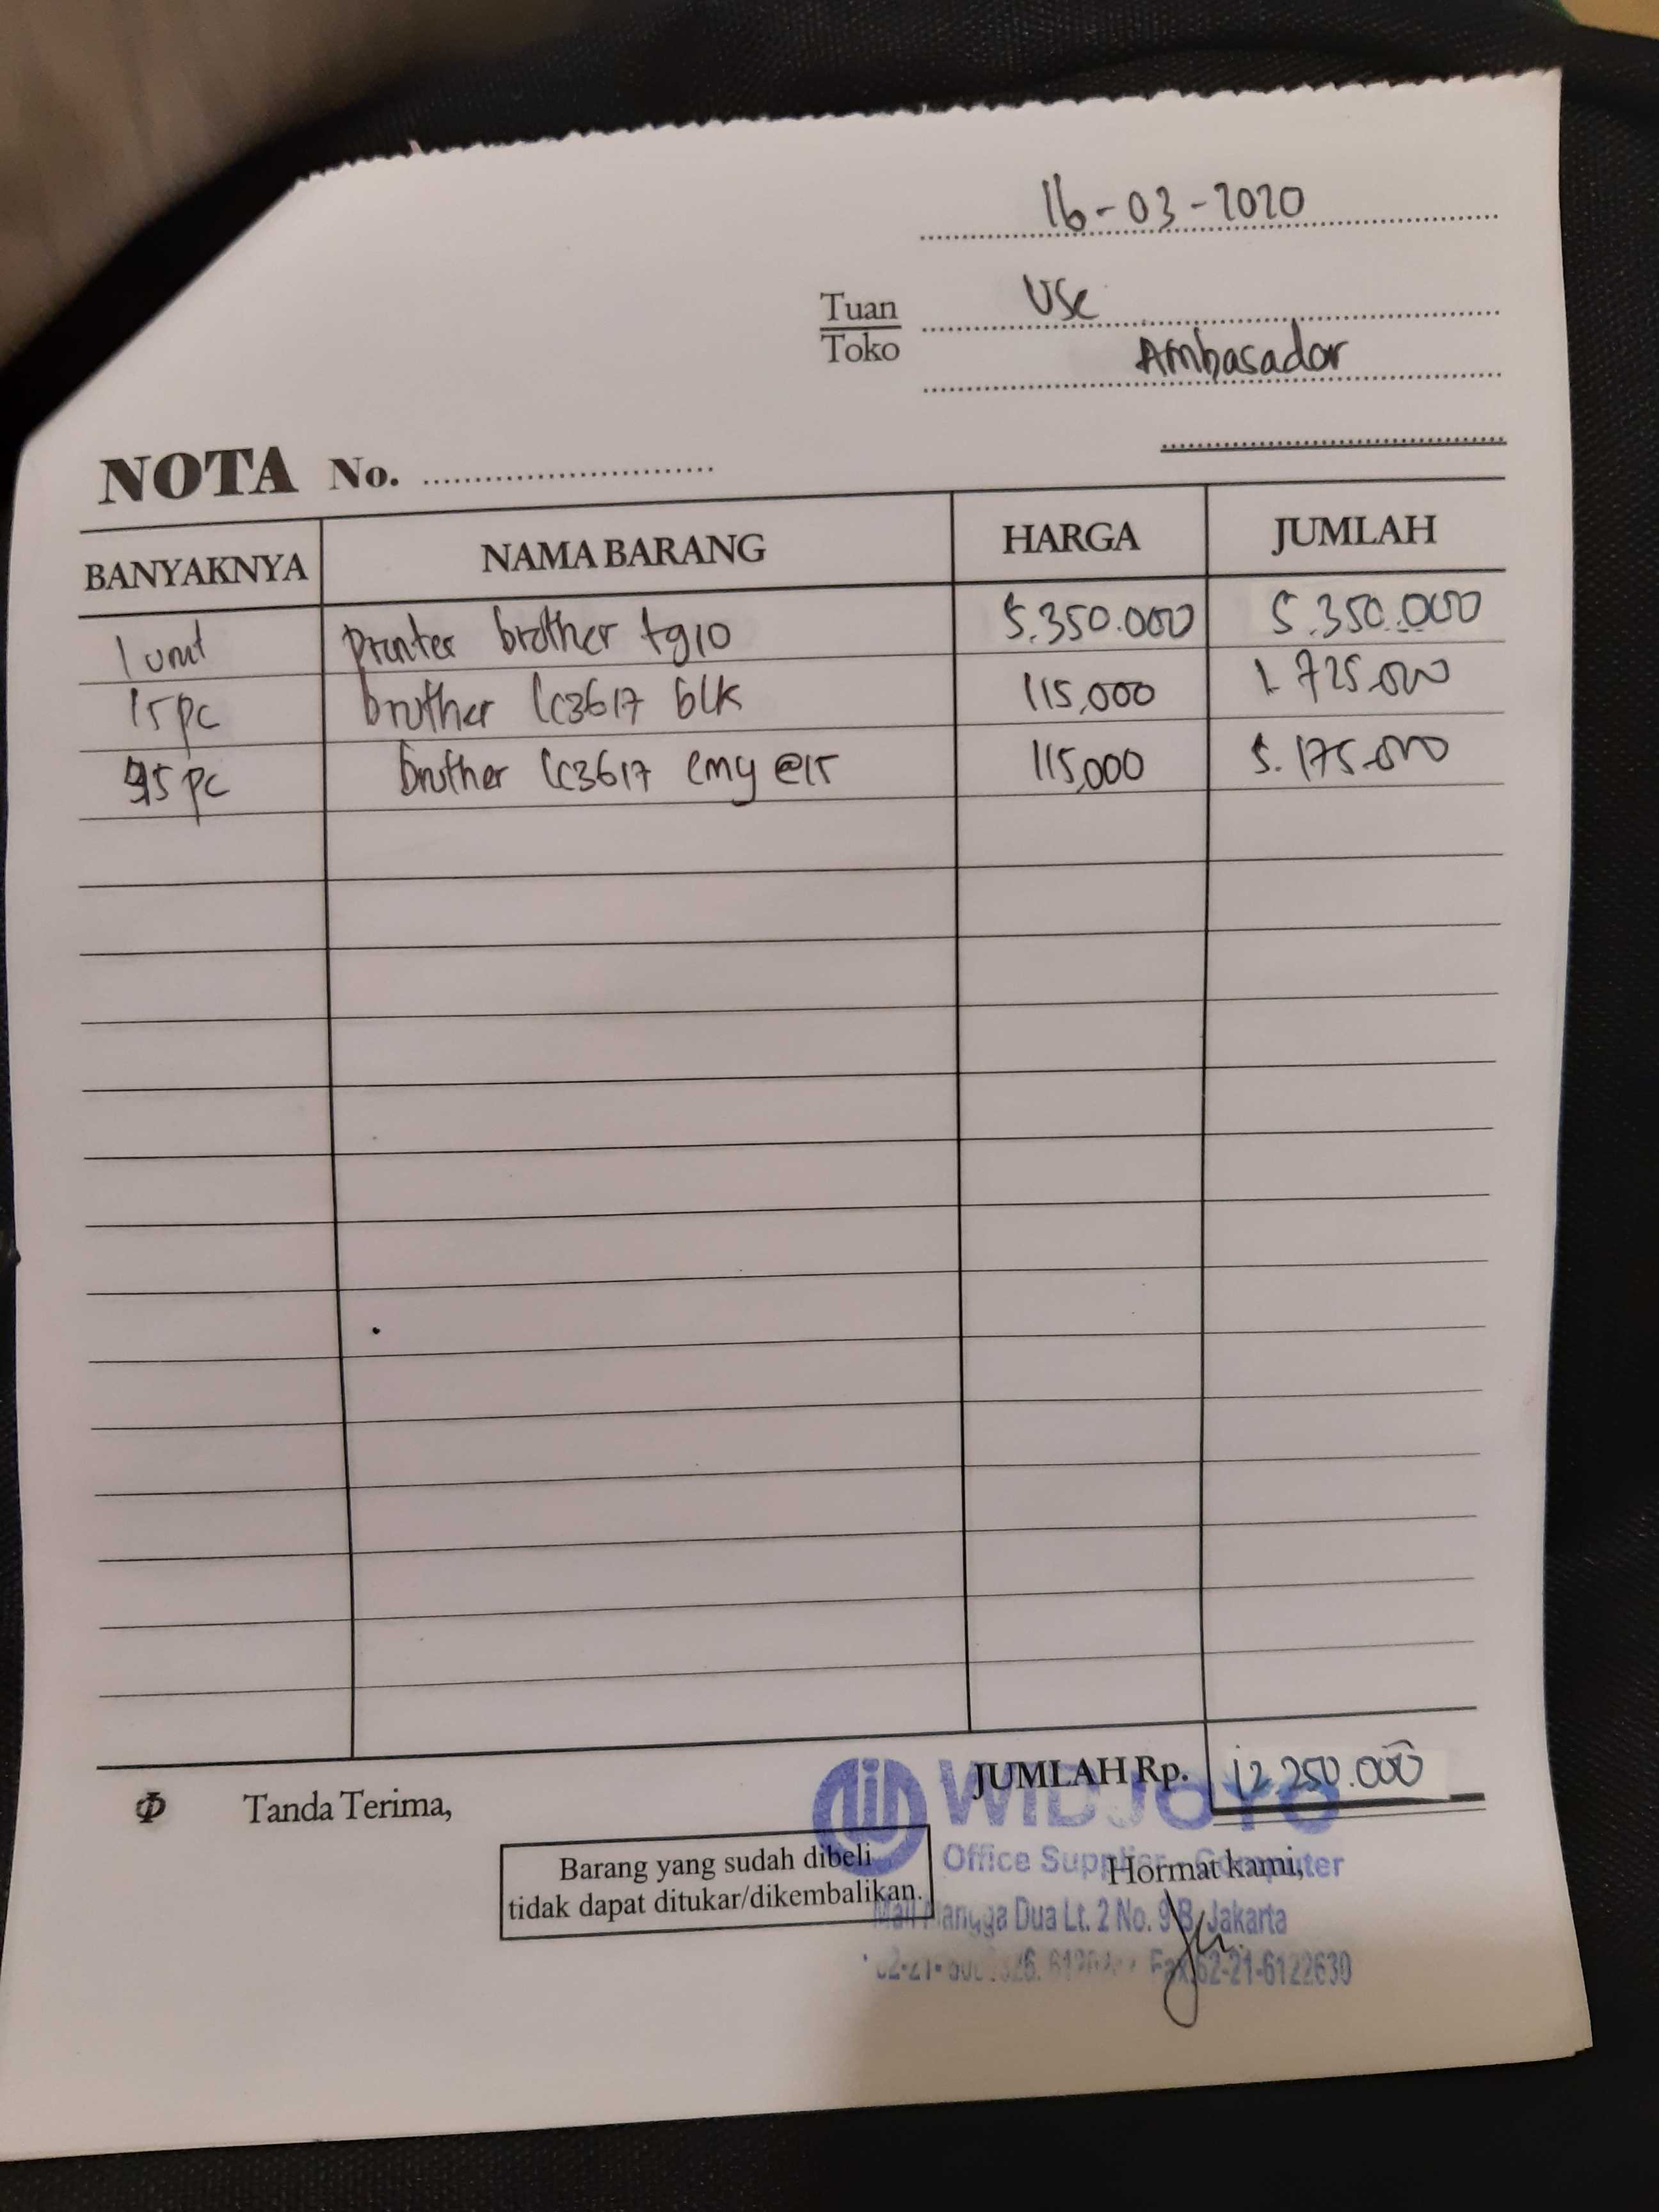 16-03-2020
Tuan
Toko
USC
Ambasador
NOTA No.
BANYAKNYA NAMA BARANG HARGA JUMLAH
1 unit printer brother t910 5.350.000 5.350.000
15 pc brother lc3617 blk 115,000 1.725.000
45 pc brother lc3617 cmy @15 115,000 5.175.000
JUMLAH Rp. 12.250.000
Tanda Terima,
WIDJOYO
Office Supplier - Computer
Hormat kami,
Barang yang sudah dibeli
tidak dapat ditukar/dikembalikan.
Mall Mangga Dua Lt. 2 No. 9 B, Jakarta
Fax.62-21-6122630